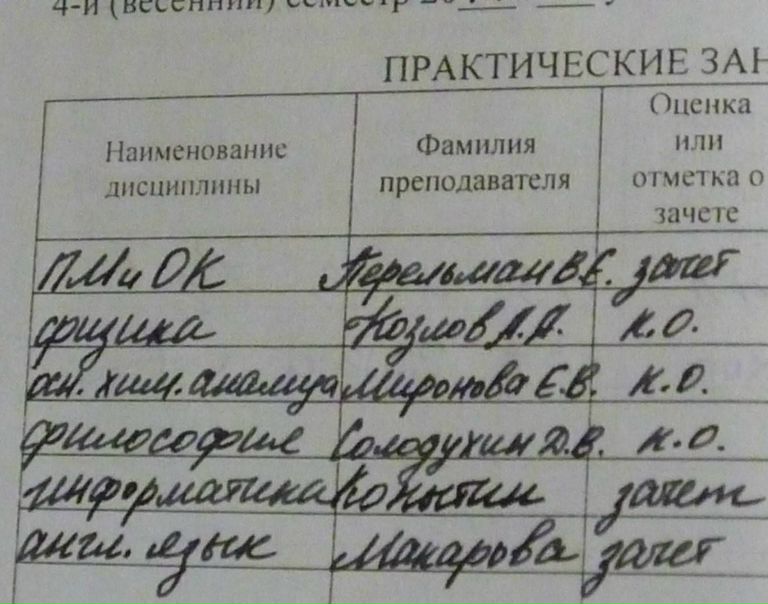 4-й (весенний) семестр 20
ПРАКТИЧЕСКИЕ ЗАН
Наименование
дисциплины
Фамилия
преподавателя
Оценка
или
отметка о
зачете
ПМиОК Перельман В.Е. зачет
физика Козлов А.А. к.о.
хим. анализа Миронова Е.В. к.о.
философия Солодухин Д.В. к.о.
информатика Копытин зачет
англ. язык Макарова зачет